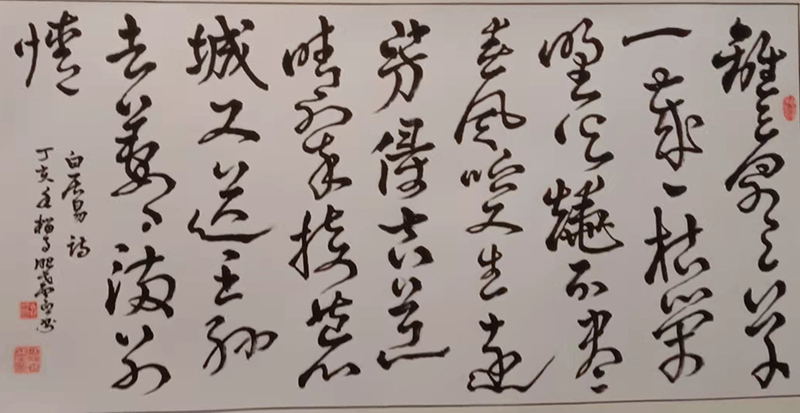 離〻原上草
一歲一枯榮
野火燒不盡
春風吹又生遠
芳侵古道
晴翠接荒
城又送王孫
去萋〻滿別
情
白居易詩
丁亥年 書